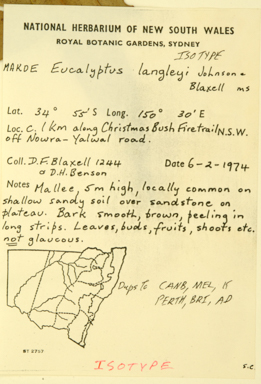 NATIONAL HERBARIUM OF NEW SOUTH WALES
ROYAL BOTANIC GARDENS, SYDNEY
ISOTYPE
Eucalyptus langleyi Johnson &
Blaxell ms
Lat. 34° 55'S Long. 150° 30'E
Loc. C. 1 Km along Christmas Bush Firetrail N.S.W.
off Nowra-Yalwal road.
Coll. D.F. Blaxell 1244 Date 6-2-1974
& D.H. Benson
Notes Mallee, 5m high, locally common on
shallow sandy soil over sandstone on
plateau. Bark smooth, brown, peeling in
long strips. Leaves, buds, fruits, shoots etc.
not glaucous.
Dups to CANB, MEL, K
PERTH, BRI, AD
ISOTYPE